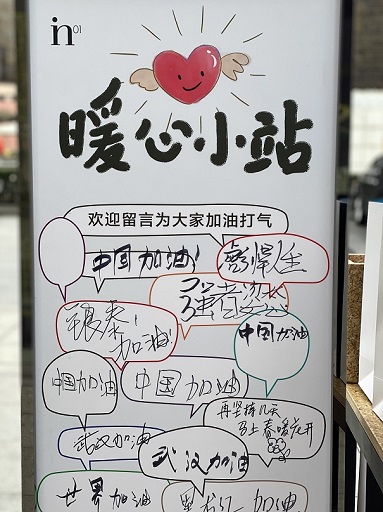 in01
暖心小站
欢迎留言为大家加油打气
中国加油!
银泰!
加油!
中国加油
中国加油
中国加油
再坚持几天
马上春暖花开
武汉加油
武汉加油
世界加油
加油